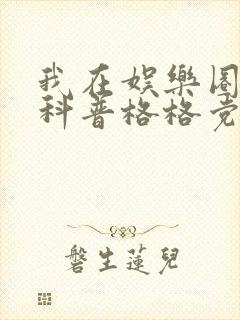 我在娛樂圈
科普格格党
磐生蓮兒